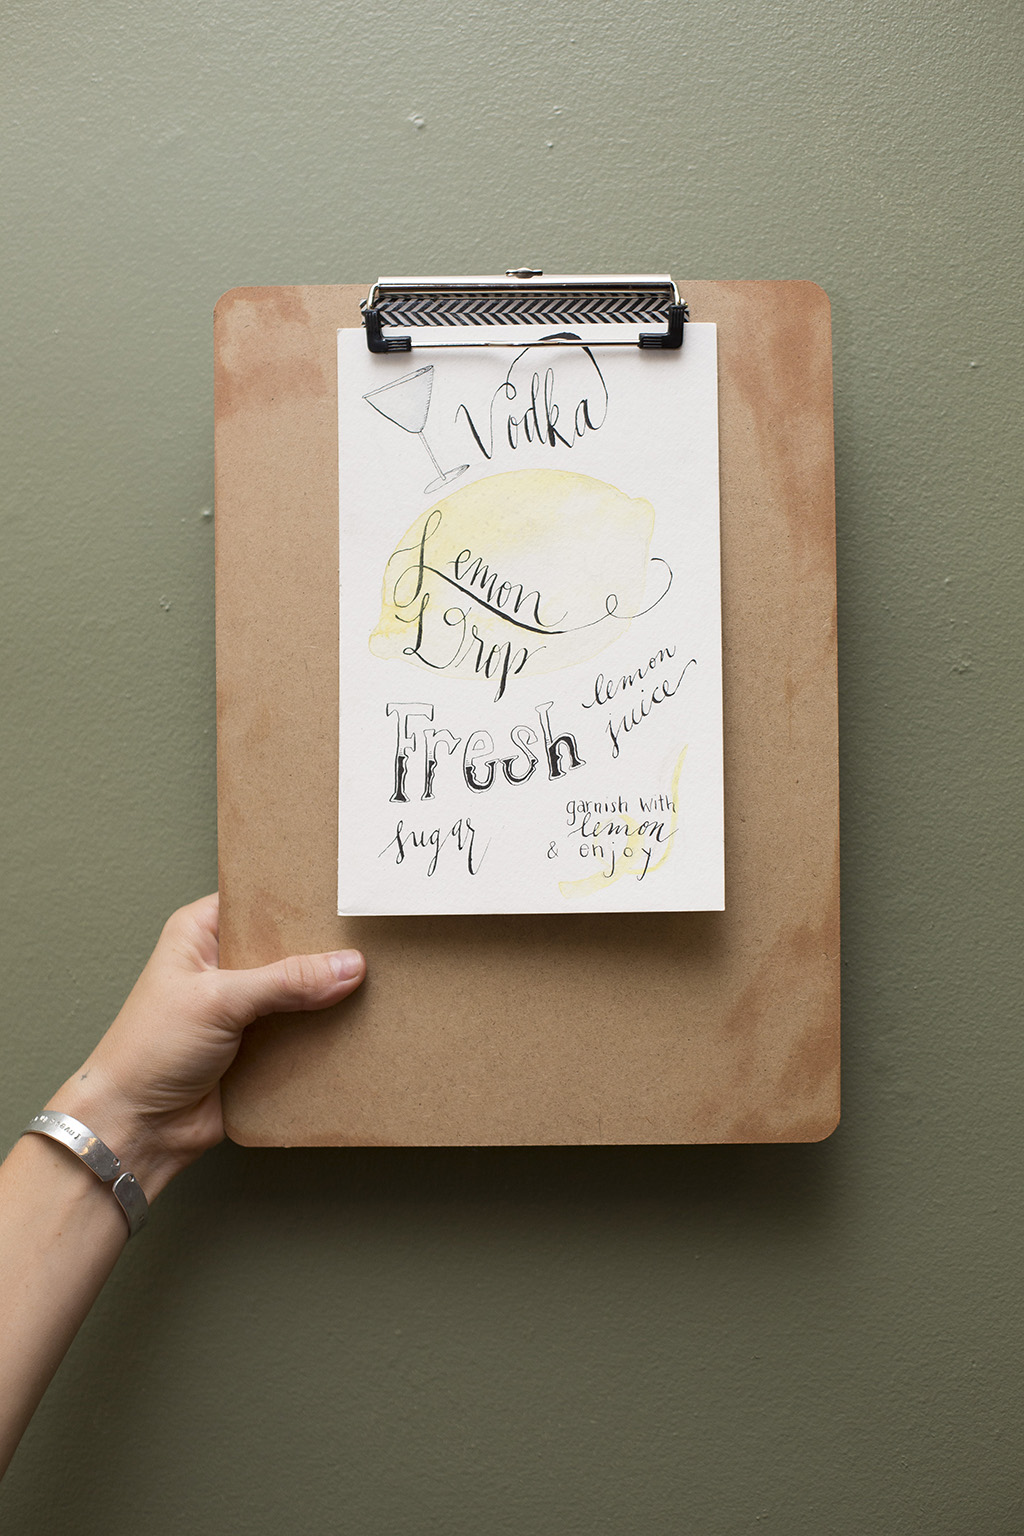 Vodka
Lemon
Drop
Fresh lemon
juice
sugar
garnish with
lemon
& enjoy